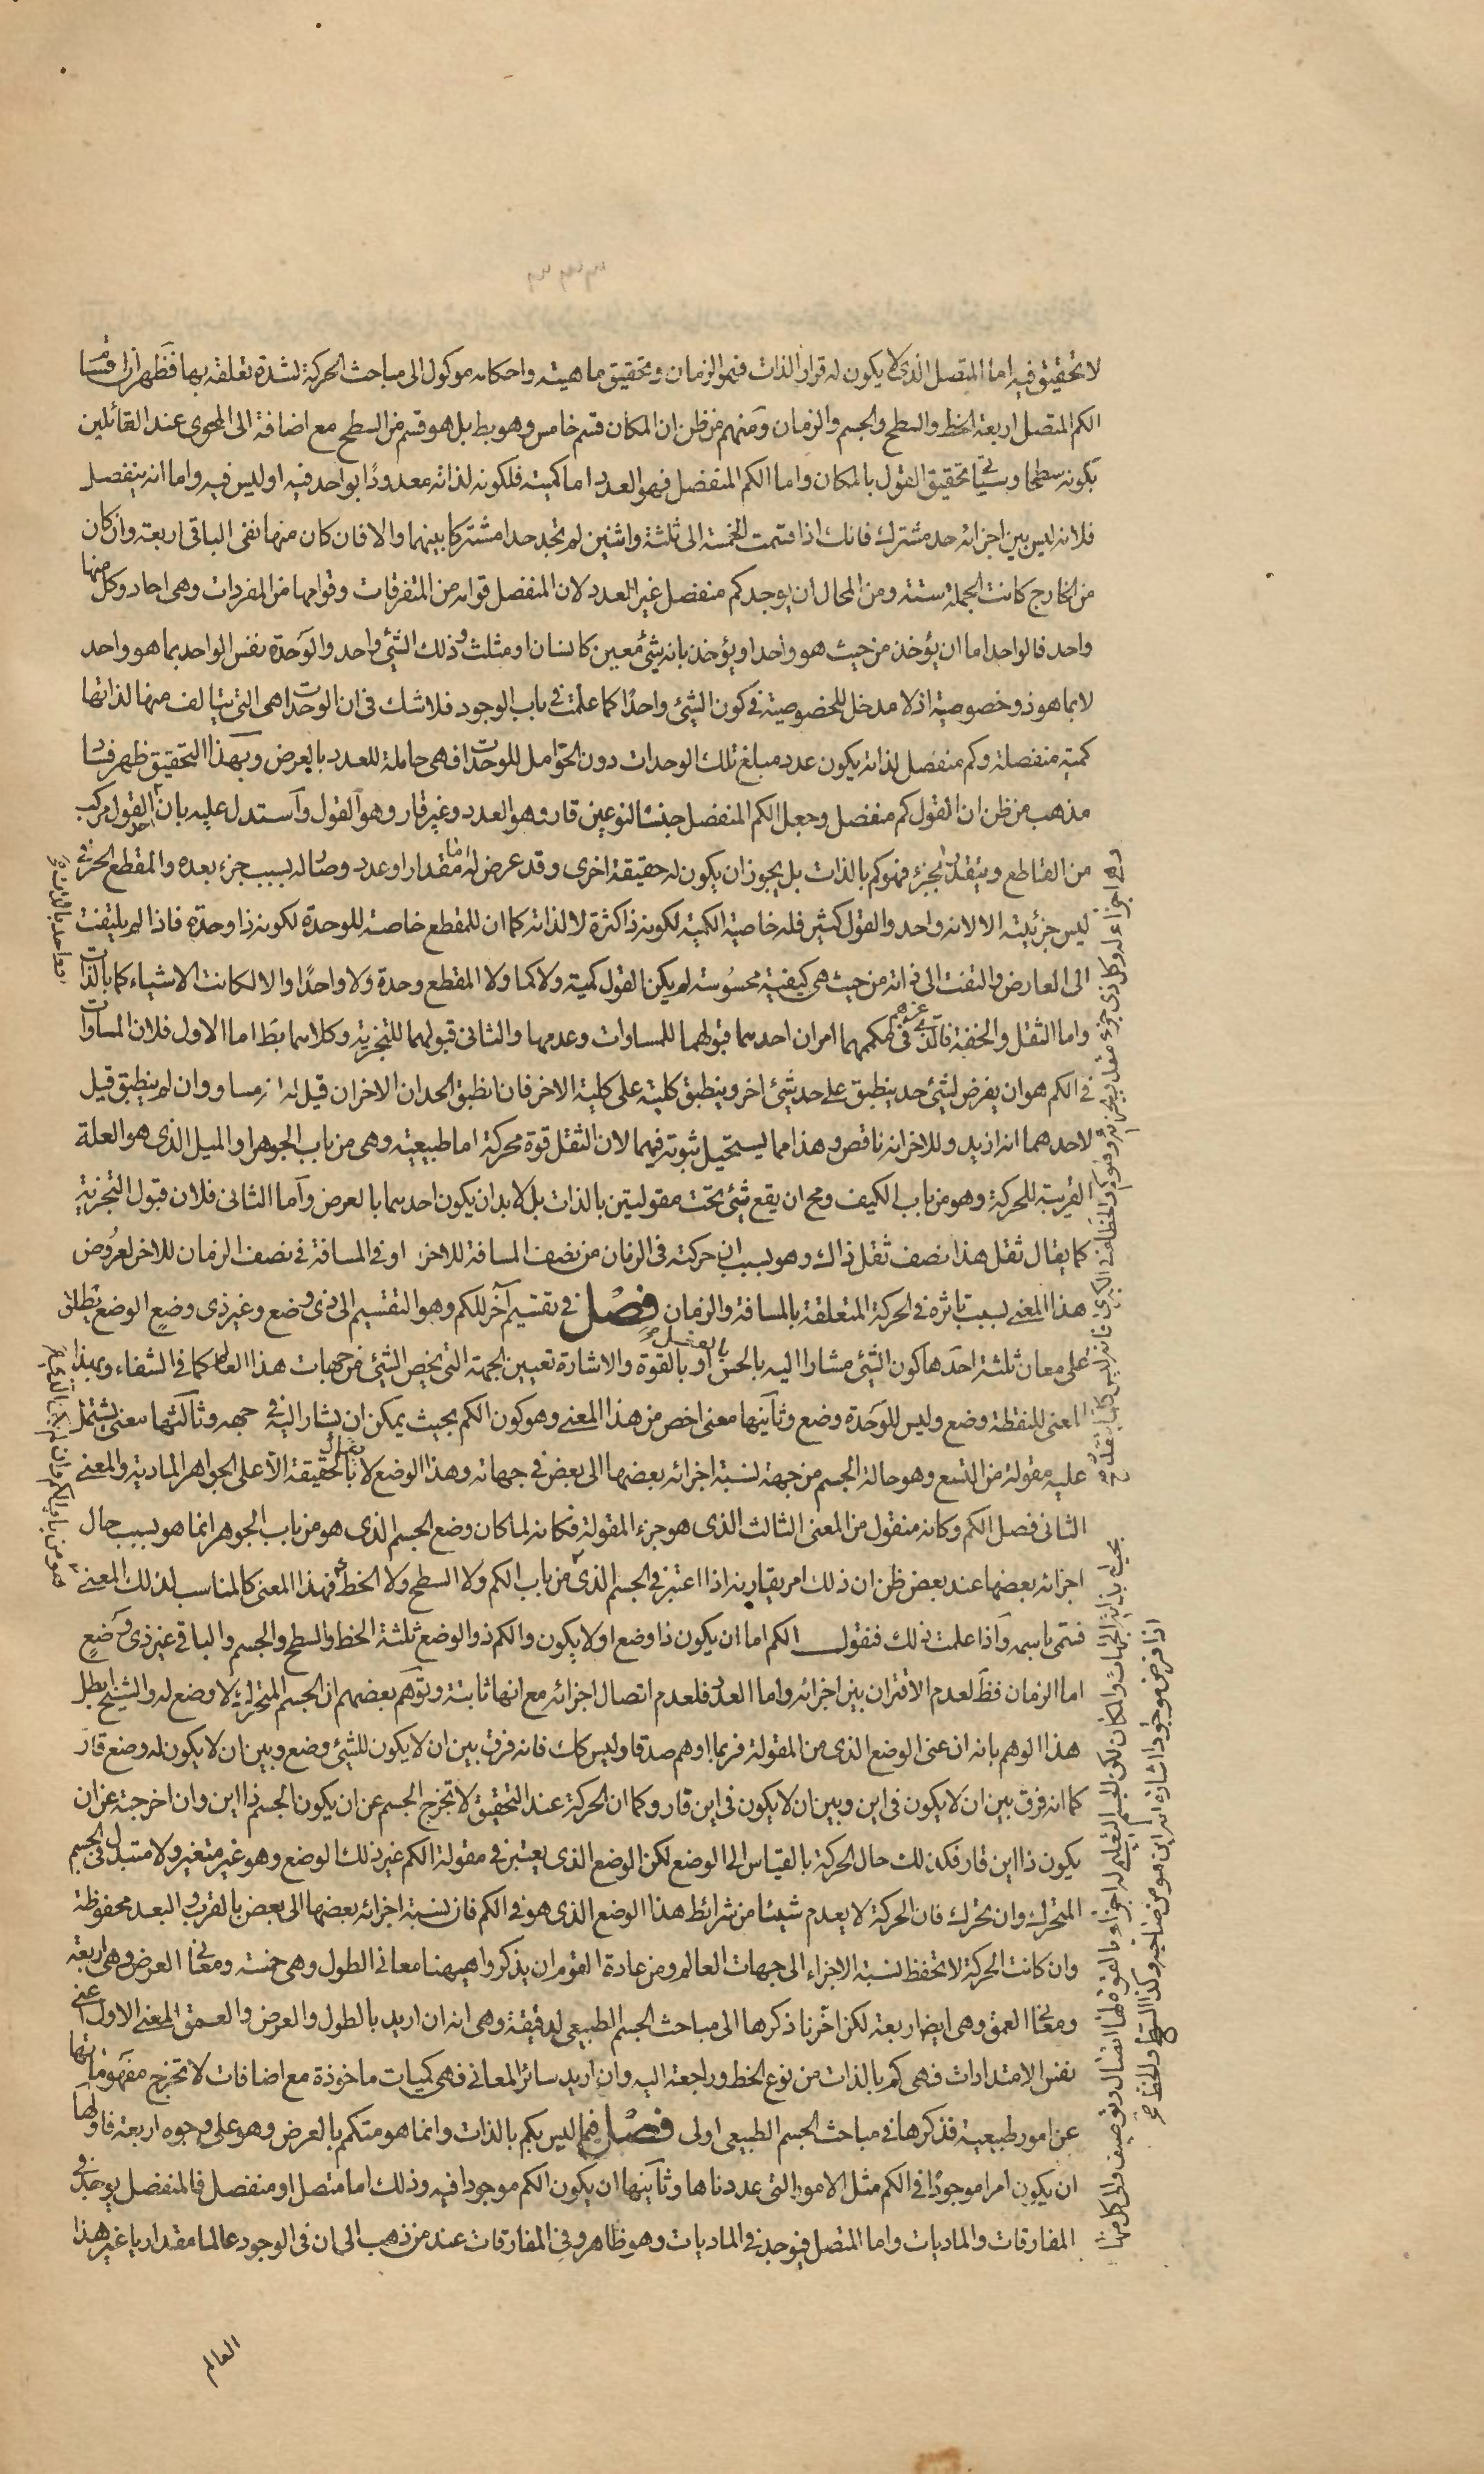 لا تحقيق فيه اما المتصل الذى لا يكون له قرار الذات فهو الزمان وتحقيق ماهيته واحكامه موكول الى مباحث الحركة لشدة تعلقه بها فظهر ان اقسام
الكم المتصل اربعة الخط والسطح والجسم والزمان ومنهم من ظن ان المكان قسم خامس وهو بط بل هو قسم من السطح مع اضافة الى المحوى عند القائلين
بكونه سطحا وسيأتى تحقيق القول بالمكان واما الكم المنفصل فهو العدد اما كميته فلكونه لذاته معدودًا بواحد فيه او ليس فيه واما انه ينفصل
فلانه ليس بين اجزائه حد مشترك فانك اذا قسمت الخمسة الى ثلثة واثنين لم تجد حدا مشتركا بينهما والا فان كان منها نفى الباقى اربعة وان كان
من الخارج كانت الجملة ستة ومن المحال ان يوجد كم منفصل غير العدد لان المنفصل قوامه من المتفرقات وقوامها من المفردات وهى احاد وكل منها
واحد فالواحد اما ان يؤخذ من حيث هو واحد او يؤخذ بانه شئ معين كانسان او مثلث وذلك الشئ واحد والوحدة نفس الواحد بما هو واحد
لا بما هو ذو خصوصية اذ لا مدخل للخصوصية فى كون الشئ واحدًا كما علمت فى باب الوجود فلا شك فى ان الوحدات هى التى يتألف منها لذاتها
كمية منفصلة وكم منفصل لذاته يكون عدد مبلغ تلك الوحدات دون الحوامل للوحدات فهى حاملة للعدد بالعرض وبهذا التحقيق ظهر فساد
مذهب من ظن ان القول كم منفصل وجعل الكم المنفصل جنسًا لنوعين قار وهو العدد وغير قار وهو القول واستدل عليه بان القول مركب
من المقاطع ويتقدر بجزء فهو كم بالذات بل يجوز ان يكون له حقيقة اخرى وقد عرض له مقدار او عدد وصار له بسبب جزء بعده والمقطع الحرفى
ليس جزئيته الا لانه واحد والقول كثير فله خاصية الكمية لكونه ذا كثرة لا لذاته كما ان للمقطع خاصة للوحدة لكونه ذا وحدة فاذا لم يلتفت
الى العارض والتفت الى ذاته من حيث هى كيفية محسوسة لم يكن القول كمية ولا كما ولا المقطع وحدة ولا واحدًا والا لكانت الاشياء كما بالذات
واما الثقل والخفة فالذى غرهم فى كمكمهما امران احدهما قبولهما للمساوات وعدمها والثانى قبولهما للتجزية وكلاهما بط اما الاول فلان المساوات
فى الكم هو ان يفرض لشئ حد ينطبق على حد شئ اخر وينطبق كليته على كلية الاخر فان انطبق الحدان الاخران قيل له انه مساو وان لم ينطبق قيل
لاحدهما انه ازيد وللاخر انه ناقص وهذا مما يستحيل ثبوته فيهما لان الثقل قوة محركة اما طبيعية وهى من باب الجوهر او الميل الذى هو العلة
القريبة للحركة وهو من باب الكيف ومح ان يقع شئ تحت مقولتين بالذات بل لا بد ان يكون احدهما بالعرض واما الثانى فلان قبول التجزية
كما يقال ثقل هذا نصف ثقل ذاك وهو بسبب ان حركته فى الزمان من نصف المسافة للاخر او فى المسافة فى نصف الزمان للاخر لعروض
هذا المعنى بسبب تاثره فى الحركة المتعلقة بالمسافة والزمان فصل فى تقسيم آخر للكم وهو التقسيم الى ذى وضع وغير ذى وضع الوضع يطلق
على معان ثلثة احدها كون الشئ مشارا اليه بالحس بالفعل او بالقوة والاشارة تعيين الجهة التى يخص الشئ من جهات هذا العالم كما فى الشفاء وبهذا
المعنى للنقطة وضع وليس للوحدة وضع وثانيها معنى اخص من هذا المعنى وهو كون الكم بحيث يمكن ان يشار اليه فى جهه وثالثها معنى يشتمل
عليه مقولة من التسع وهو حالة الجسم من جهة نسبة اجزائه بعضها الى بعض فى جهاته وهذا الوضع لا يقال بالحقيقة الا على الجواهر المادية والمعنى
الثانى فصل الكم وكانه منقول من المعنى الثالث الذى هو جزء المقولة فكانه لما كان وضع الجسم الذى هو من باب الجوهر انما هو بسبب حال
اجزائه بعضها عند بعض ظن ان ذلك امر يقارنه اذا اعتبر فى الجسم الذى من باب الكم ولا السطح ولا الخط فهذا المعنى كالمناسب لذلك المعنى
فسمى باسمه واذا علمت ذلك فنقول الكم اما ان يكون ذا وضع او لا يكون والكم ذو الوضع ثلثة الخط والسطح والجسم والباقى غير ذى وضع
اما الزمان فظ لعدم الاقتران بين اجزائه واما العدد فلعدم اتصال اجزائه مع انها ثابتة وتوهم بعضهم ان الجسم المتحرك لا وضع له والشيخ ابطل
هذا الوهم بانه ان عنى الوضع الذى من المقولة فربما اوهم صدقا وليس كك فانه فرق بين ان لا يكون للشئ وضع وبين ان لا يكون له وضع قار
كما انه فرق بين ان لا يكون فى اين وبين ان لا يكون فى اين قار وكما ان الحركة عند التحقيق لا تخرج الجسم عن ان يكون الجسم ذا اين وان اخرجته عن ان
يكون ذا اين قار فكذلك حال الحركة بالقياس الى الوضع لكن الوضع الذى يعتبر فى مقولة الكم غير ذلك الوضع وهو غير متغير ولا متبدل فى الجسم
المتحرك وان تحرك فان الحركة لا يعدم شيئا من شرائط هذا الوضع الذى هو فى الكم فان نسبة اجزائه بعضها الى بعض بالقرب والبعد محفوظة
وان كانت الحركة لا تحفظ نسبة الاجزاء الى جهات العالم ومن عادة القوم ان يذكروا هيهنا معانى الطول وهى خمسة ومعانى العرض وهى اربعة
ومعانى العمق وهى ايضا اربعة لكن اخرنا ذكرها الى مباحث الجسم الطبيعى لدقيقة وهى انه ان اريد بالطول والعرض والعمق المعنى الاول اعنى
نفس الامتدادات فهى كم بالذات من نوع الخط وراجعة اليه وان اريد سائر المعانى فهى كميات ماخوذة مع اضافات لا تخرج مفهوماتها
عن امور طبيعية فذكرها فى مباحث الجسم الطبيعى اولى فصل فيما ليس بكم بالذات وانما هو متكمم بالعرض وهو على وجوه اربعة فاولها
ان يكون امرا موجودًا فى الكم مثل الامور التى عددناها وثانيها ان يكون الكم موجودا فيه وذلك اما متصل او منفصل فالمنفصل يوجد فى
المفارقات والماديات واما المتصل فيوجد فى الماديات وهو ظاهر وفى المفارقات عند من ذهب الى ان فى الوجود عالما مقداريا غير هذا
العالم